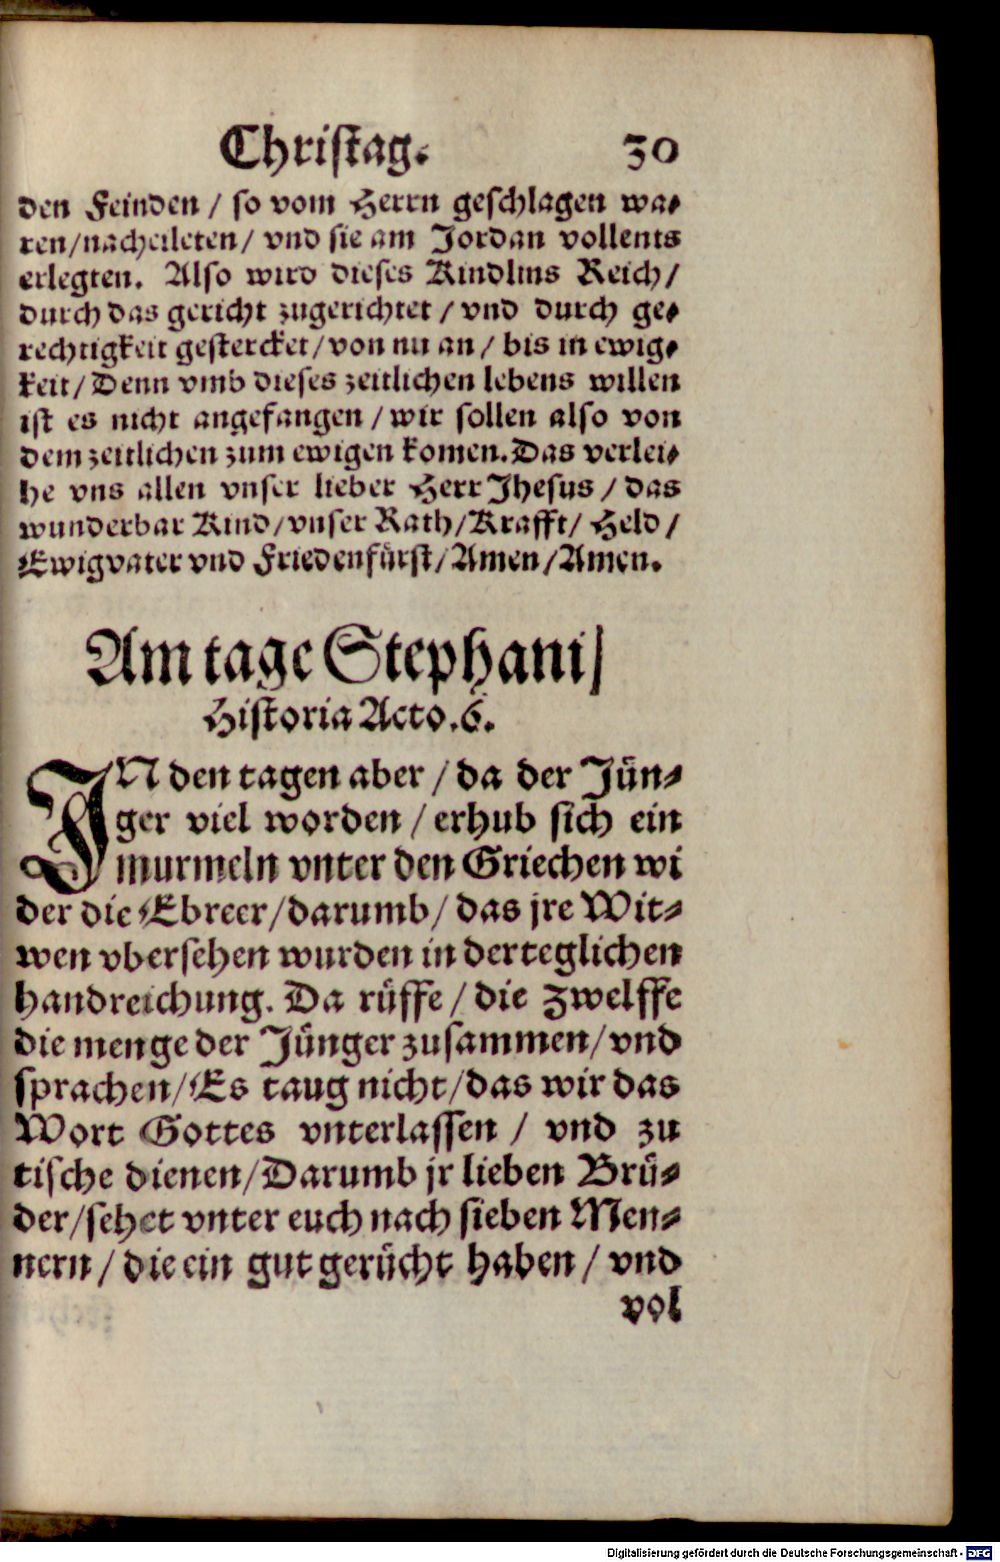 Christag. 30
den Feinden / so vom Herrn geschlagen wa-
ren/nacheileten/ vnd sie am Jordan vollents
erlegten. Also wird dieses Kindlins Reich/
durch das gericht zugerichtet / vnd durch ge-
rechtigkeit gestercket/von nu an / bis in ewig-
keit/Denn vmb dieses zeitlichen lebens willen
ist es nicht angefangen / wir sollen also von
dem zeitlichen zum ewigen komen.Das verlei-
he vns allen vnser lieber Herr Jhesus / das
wunderbar Kind/vnser Rath/Krafft/ Held/
Ewigvater vnd Friedenfürst/Amen/Amen.
Am tage Stephani/
Historia Acto.6.
JN den tagen aber / da der Jün-
ger viel worden / erhub sich ein
murmeln vnter den Griechen wi
der die Ebreer/darumb/ das jre Wit-
wen vbersehen wurden in der teglichen
handreichung. Da rüffe / die zwelffe
die menge der Jünger zusammen/vnd
sprachen/Es taug nicht/das wir das
Wort Gottes vnterlassen / vnd zu
tische dienen/Darumb jr lieben Brü-
der/sehet vnter euch nach sieben Men-
nern / die ein gut gerücht haben / vnd
vol
Digitalisierung gefördert durch die Deutsche Forschungsgemeinschaft - DFG